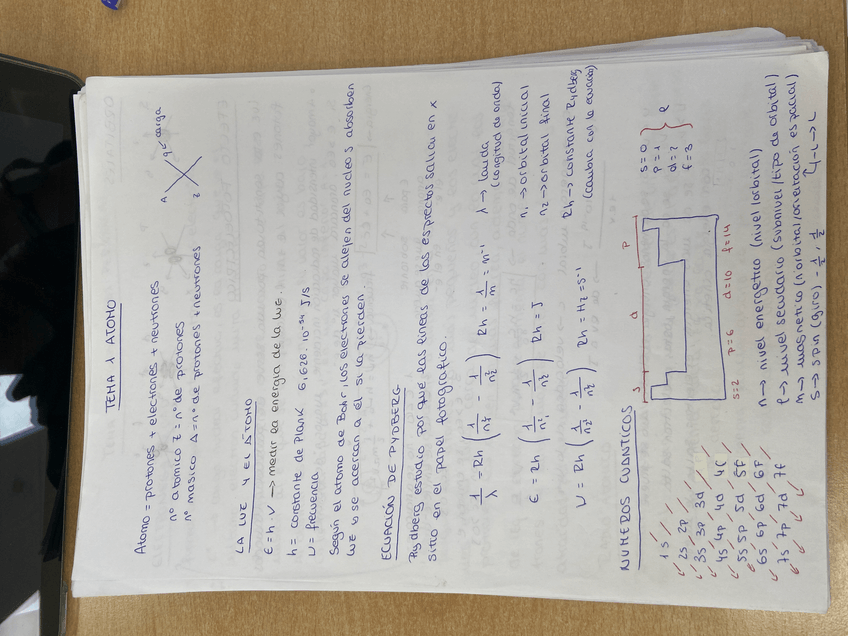 TEMA 1 ATOMO
Atomo = protones + electrones + neutrones
nº atomico z = nº de protones
nº masico A = nº de protones + neutrones
A q = carga
X
z
LA LUZ Y EL ÁTOMO
E = h · ν → medir la energia de la luz.
h = constante de Plank 6,626 · 10⁻³⁴ J/s
ν = frecuencia
Según el atomo de Bohr, los electrones se alejan del nucleo s absorben
luz o se acercan a él si la pierden.
ECUACIÓN DE RYDBERG
Rydberg estudio por qué las lineas de los espectros salian en x
sitio en el papel fotografico.
1/λ = Rh (1/n₁² - 1/n₂²) Rh = 1/m = m⁻¹ λ → lauda
(longitud de onda)
E = Rh (1/n₁² - 1/n₂²) Rh = J n₁ → orbital inicial
n₂ → orbital final
ν = Rh (1/n₁² - 1/n₂²) Rh = Hz = s⁻¹ Rh → constante Rydberg
(cambia con la ecuación)
NUMEROS CUANTICOS
1s
2s 2p
3s 3p 3d
4s 4p 4d 4f
5s 5p 5d 5f
6s 6p 6d 6f
7s 7p 7d 7f
s d p
s=2 p=6 d=10 f=14
s=0
p=1
d=2
f=3
l
n → nivel energetico (nivel orbital)
l → nivel secundario (subnivel/tipo de orbital)
m → magnetico (nºorbital/orientación espacial)
↳ -L → L
s → spin (giro) - 1/2, 1/2